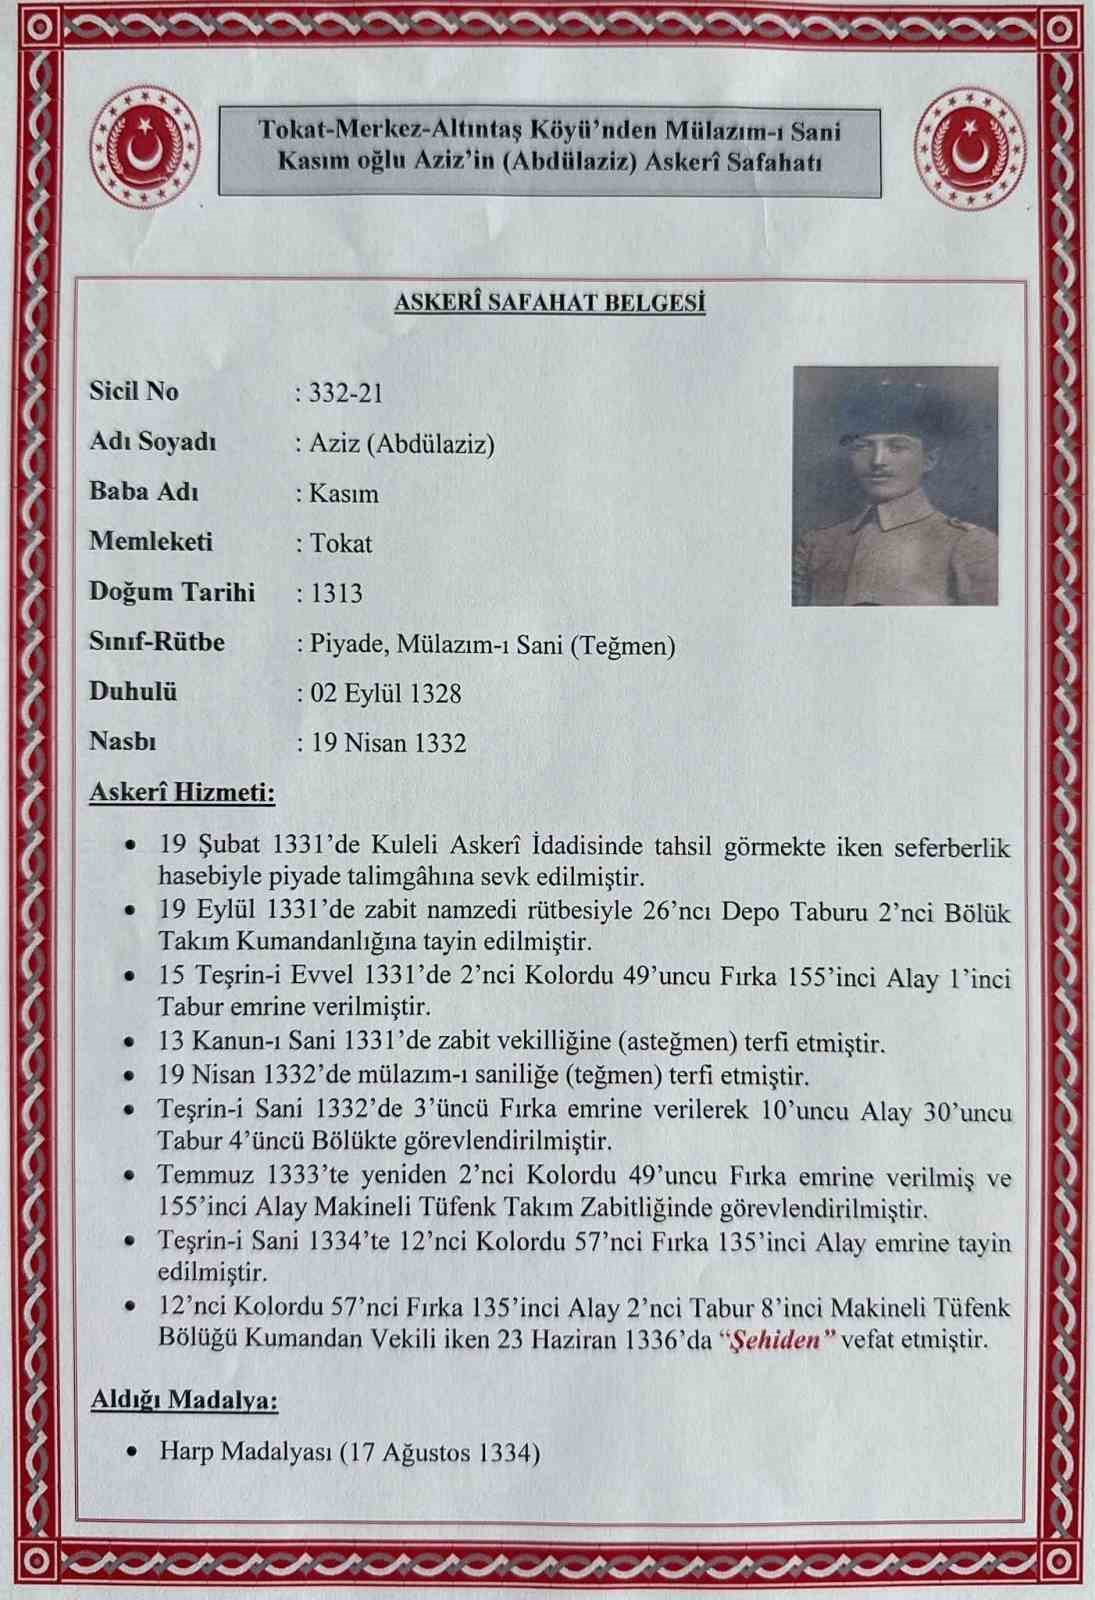 Tokat-Merkez-Altıntaş Köyü’nden Mülazım-ı Sani
Kasım oğlu Aziz’in (Abdülaziz) Askerî Safahatı
ASKERÎ SAFAHAT BELGESİ
Sicil No : 332-21
Adı Soyadı : Aziz (Abdülaziz)
Baba Adı : Kasım
Memleketi : Tokat
Doğum Tarihi : 1313
Sınıf-Rütbe : Piyade, Mülazım-ı Sani (Teğmen)
Duhulü : 02 Eylül 1328
Nasbı : 19 Nisan 1332
Askerî Hizmeti:
• 19 Şubat 1331’de Kuleli Askerî İdadisinde tahsil görmekte iken seferberlik
hasebiyle piyade talimgâhına sevk edilmiştir.
• 19 Eylül 1331’de zabit namzedi rütbesiyle 26’ncı Depo Taburu 2’nci Bölük
Takım Kumandanlığına tayin edilmiştir.
• 15 Teşrin-i Evvel 1331’de 2’nci Kolordu 49’uncu Fırka 155’inci Alay 1’inci
Tabur emrine verilmiştir.
• 13 Kanun-ı Sani 1331’de zabit vekilliğine (asteğmen) terfi etmiştir.
• 19 Nisan 1332’de mülazım-ı saniliğe (teğmen) terfi etmiştir.
• Teşrin-i Sani 1332’de 3’üncü Fırka emrine verilerek 10’uncu Alay 30’uncu
Tabur 4’üncü Bölükte görevlendirilmiştir.
• Temmuz 1333’te yeniden 2’nci Kolordu 49’uncu Fırka emrine verilmiş ve
155’inci Alay Makineli Tüfenk Takım Zabitliğinde görevlendirilmiştir.
• Teşrin-i Sani 1334’te 12’nci Kolordu 57’nci Fırka 135’inci Alay emrine tayin
edilmiştir.
• 12’nci Kolordu 57’nci Fırka 135’inci Alay 2’nci Tabur 8’inci Makineli Tüfenk
Bölüğü Kumandan Vekili iken 23 Haziran 1336’da “Şehiden” vefat etmiştir.
Aldığı Madalya:
• Harp Madalyası (17 Ağustos 1334)